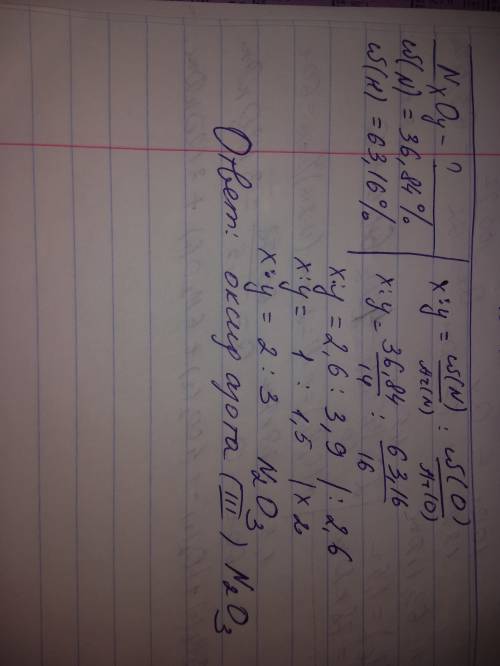 NxOy - ?
ω(N) = 36,84%
ω(N) = 63,16%
x:y = ω(N)/Ar(N) : ω(O)/Ar(O)
x:y = 36,84/14 : 63,16/16
x:y = 2,6 : 3,9 | : 2,6
x:y = 1 : 1,5 | x 2
x:y = 2 : 3 N₂O₃
Ответ: оксид азота (III) N₂O₃